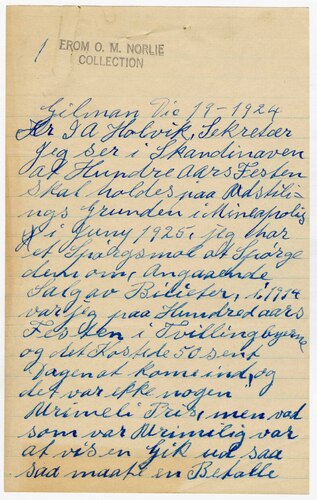 1
FROM O. M. NORLIE
COLLECTION
Gilman Dic 19-1924
Hr J A Holvik, Sekretær
Jeg ser i Skandinaven
at Hundre Aars Festen
skal holdes paa Udstili-
ngs Grunden i Mineapolis
i Juny 1925, jeg har
et Spørgsmol at Spiørge
dem om, Angaaende
Salg av Bilieter, i 1914
var jeg paa Hundredaars
Festen i Tvillingbyerne
og det Kostede 50 sent
Dagen at kome ind, og
det var ikke nogen
Urimeli Pris, men vad
som var Urimilig var
at vis en Gik ud saa
saa maate en Betalle